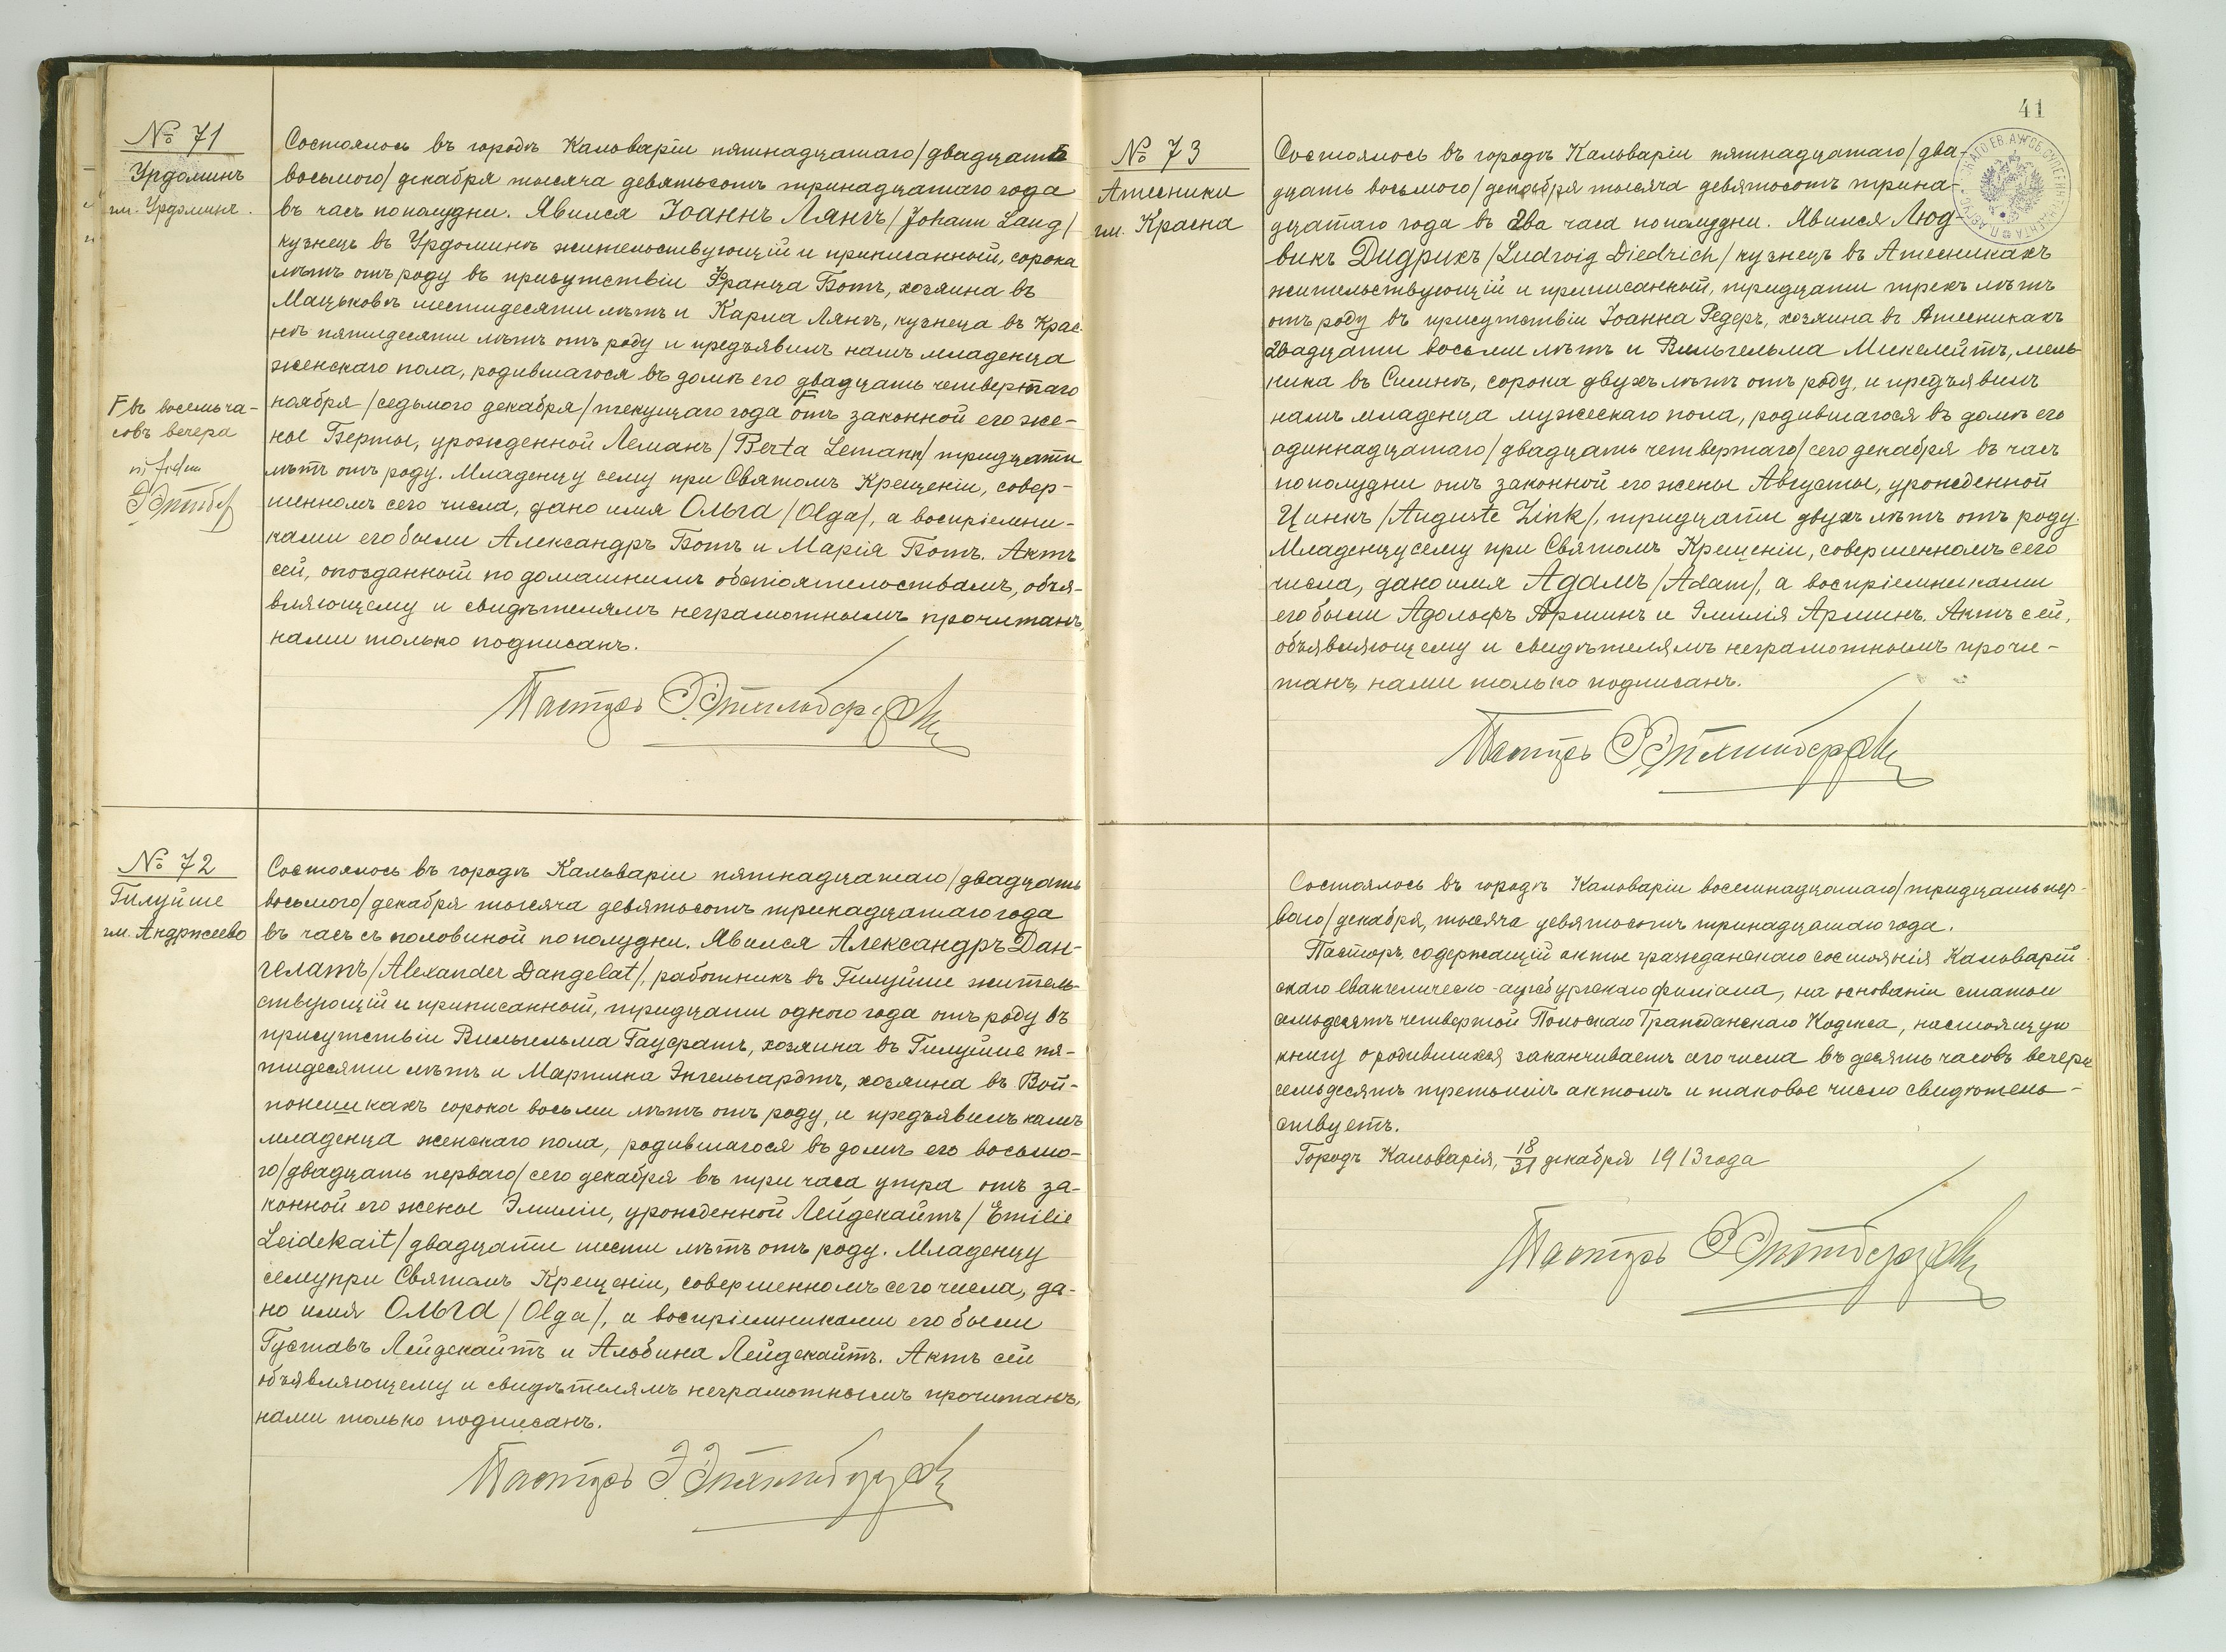 № 71
Урдоминъ
гм. Урдоминъ.
Состоялось въ городѣ Кальваріи пятнадцатаго/двадцать
восьмого/декабря тысяча девятьсотъ тринадцатаго года
въ часъ пополудни. Явился Іоаннъ Лянгъ/Johann Lang/
кузнецъ въ Урдоминѣ жительствующій и приписанный, сорока
лѣтъ отъ роду въ присутствіи Франца Ботъ, хозяина въ
Мацьковѣ шестидесяти лѣтъ и Карла Лянгъ, кузнеца въ Крас-
нѣ пятидесяти лѣтъ отъ роду и предъявилъ намъ младенца
женскаго пола, родившагося въ домѣ его двадцать четвертаго
ноября/седьмого декабря/текущаго года отъ законной его же-
ны Берты, урожденной Леманъ/Berta Lemann/тридцати
лѣтъ отъ роду. Младенцу сему при Святомъ Крещеніи, совер-
шенномъ сего числа, дано имя Ольга/Olga/, а воспріемни-
ками его были Александръ Ботъ и Марія Ботъ. Актъ
сей, опозданный по домашнимъ обстоятельствамъ, объя-
вляющему и свидѣтелямъ неграмотнымъ прочитанъ,
нами только подписанъ.
Г въ восемь ча-
совъ вечера
Пасторъ
№ 72
Гилуйше
гм. Андржеево
Состоялось въ городѣ Кальваріи пятнадцатаго/двадцать
восьмого/декабря тысяча девятьсотъ тринадцатаго года
въ часъ съ половиной пополудни. Явился Александръ Дан-
гелатъ/Alexander Dangelat/, работникъ въ Гилуйше житель-
ствующій и приписанный, тридцати одного года отъ роду въ
присутствіи Вильгельма Гаусратъ, хозяина въ Гилуйше пя-
тидесяти лѣтъ и Мартина Энгельгардтъ, хозяина въ Вой-
понишкахъ сорока восьми лѣтъ отъ роду, и предъявилъ намъ
младенца женскаго пола, родившагося въ домѣ его восьмо-
го/двадцать перваго/сего декабря въ три часа утра отъ за-
конной его жены Эмиліи, урожденной Лейдекайтъ/Emilie
Leidekait/двадцати шести лѣтъ отъ роду. Младенцу
сему при Святомъ Крещеніи, совершенномъ сего числа, да-
но имя Ольга/Olga/, а воспріемниками его были
Густавъ Лейдекайтъ и Альбина Лейдекайтъ. Актъ сей
объявляющему и свидѣтелямъ неграмотнымъ прочитанъ,
нами только подписанъ.
Пасторъ
41
№ 73
Атесники
гм. Красна
Состоялось въ городѣ Кальваріи пятнадцатаго/два-
дцать восьмого/декабря тысяча девятьсотъ трина-
дцатаго года въ два часа пополудни. Явился Люд-
викъ Дидрихъ/Ludwig Diedrich/кузнецъ въ Атесникахъ
жительствующій и приписанный, тридцати трехъ лѣтъ
отъ роду въ присутствіи Іоанна Редеръ, хозяина въ Атесникахъ
двадцати восьми лѣтъ и Вильгельма Микелейтъ, мель-
ника въ Симнѣ, сорока двухъ лѣтъ отъ роду, и предъявилъ
намъ младенца мужескаго пола, родившагося въ домѣ его
одиннадцатаго/двадцать четвертаго/сего декабря въ часъ
пополудни отъ законной его жены Августы, урожденной
Цинкъ/Auguste Zink/, тридцати двухъ лѣтъ отъ роду.
Младенцу сему при Святомъ Крещеніи, совершенномъ сего
числа, дано имя Адамъ/Adam/, а воспріемниками
его были Адольфъ Арминъ и Эмилія Арминъ. Актъ сей,
объявляющему и свидѣтелямъ неграмотнымъ прочи-
танъ, нами только подписанъ.
Пасторъ
Состоялось въ городѣ Кальваріи восемнадцатаго/тридцать пер-
ваго/декабря, тысяча девятьсотъ тринадцатаго года.
Пасторъ, содержащій акты гражданскаго состоянія Кальварій-
скаго евангелическо-аугсбургскаго филіала, на основаніи статьи
семьдесятъ четвертой Польскаго Гражданскаго Кодекса, настоящую
книгу о родившихся заканчиваетъ сего числа въ десять часовъ вечера
семьдесятъ третьимъ актомъ и таковое число свидѣтель-
ствуетъ.
Городъ Кальварія, 18/31 декабря 1913 года
Пасторъ